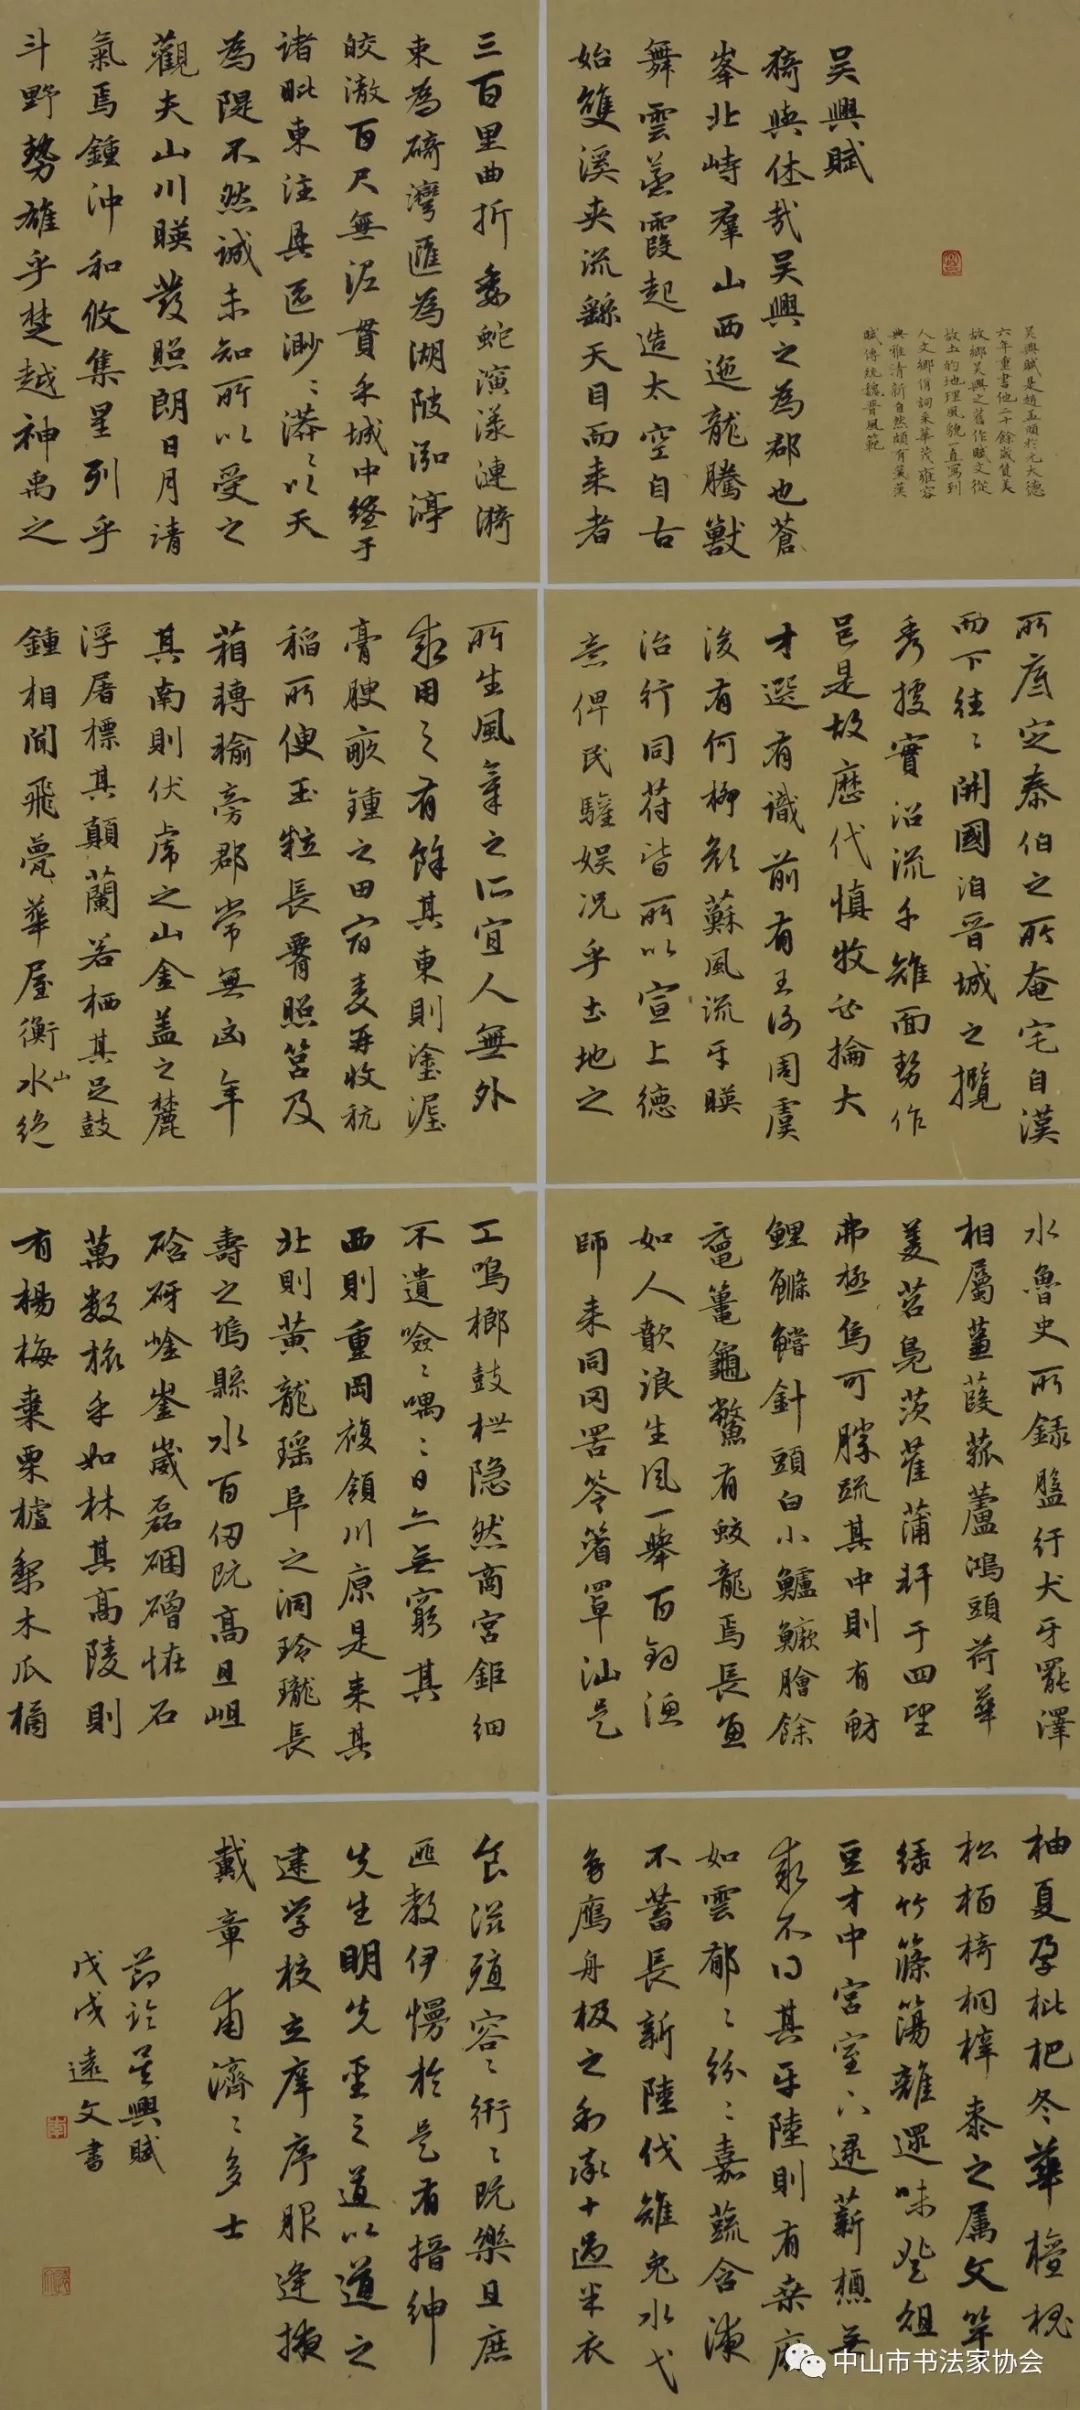 吴興賦
猗與休哉吴興之為郡也蒼
峯北峙羣山西迤龍騰獸
舞雲蒸霞起造太空自古
始雙溪夾流繇天目而来者
吴興賦是趙孟頫於元大德
六年重書他二十餘歲贊美
故鄉吴興之舊作賦文從
故土的地理風貌一直寫到
人文鄉俗詞采華茂雍容
典雅清新自然頗有蕙漢
賦傳統魏晋風範
三百里曲折委蛇演漾漣漪
束為碕灣匯為湖陂泓渟
皎澈百尺無泥貫乎城中繚于
諸毗東注具區渺〻漭〻以天
為隄不然誠未知所以受之
觀夫山川暎發照朗日月清
氣焉鍾沖和攸集星列乎
斗野勢雄乎楚越神禹之
所底定泰伯之所奄宅自漢
而下往〻開國洎晋城之攬
秀據實沿流千雉面勢作
邑是故歷代慎牧必掄大
才選有識前有王謝周虞
後有何柳顔蘇風流乎暎
治行同荷皆所以宣上德
意俾民驩娱况乎土地之
所生風氣之所宜人無外
求用之有餘其東則塗渥
膏腴畝鍾之田宿麦再收秔
稻所便玉粒長霄照筥及
箱轉输旁郡常無凶年
其南則伏虎之山金盖之麓
浮屠標其顛蘭若栖其足鼓
鍾相聞飛甍華屋衡山水絶
水魯史所録盤紆犬牙罷澤
相屬菫葭菰蘆鴻頭荷華
菱苕凫茨萑蒲軒于四望
弗極烏可勝疏其中則有魴
鯉鰷鱨針頭白小鱸鱖膾餘
黿鼉龜鱉有蛟龍焉長魚
如人歕浪生風一舉百鈞漁
師来同罔罟笭箵罩汕是
工鳴榔鼓枻隐然商宮鉅细
不遺噞〻喁〻日亦無窮其
西則重岡複領川原是来其
北則黄龍瑶阜之洞玲瓏長
壽之塢縣水百仞既高且岨
硌砑崯崟崴磊硱磳怪石
萬数旅乎如林其高陵則
有楊梅棗栗樝梨木瓜橘
柚夏孕枇杷冬華檀槐
松栢椅桐梓桼之属文竿
緑竹篠簜離還味登俎
豆才中宮室下逮薪槱無
求不得其平陸則有桑麻
如雲郁〻紛〻嘉蔬含液
不蓄長新陸伐雉兔水弋
凫鴈舟极之利率十過半衣
食滋殖容〻衎〻既樂且庶
匪教伊慢於是有搢紳
先生明先聖之道以道之
建學校立庠序服逢掖
戴章甫濟〻多士
節臨吴興賦
戊戌遠文書
中山市书法家协会